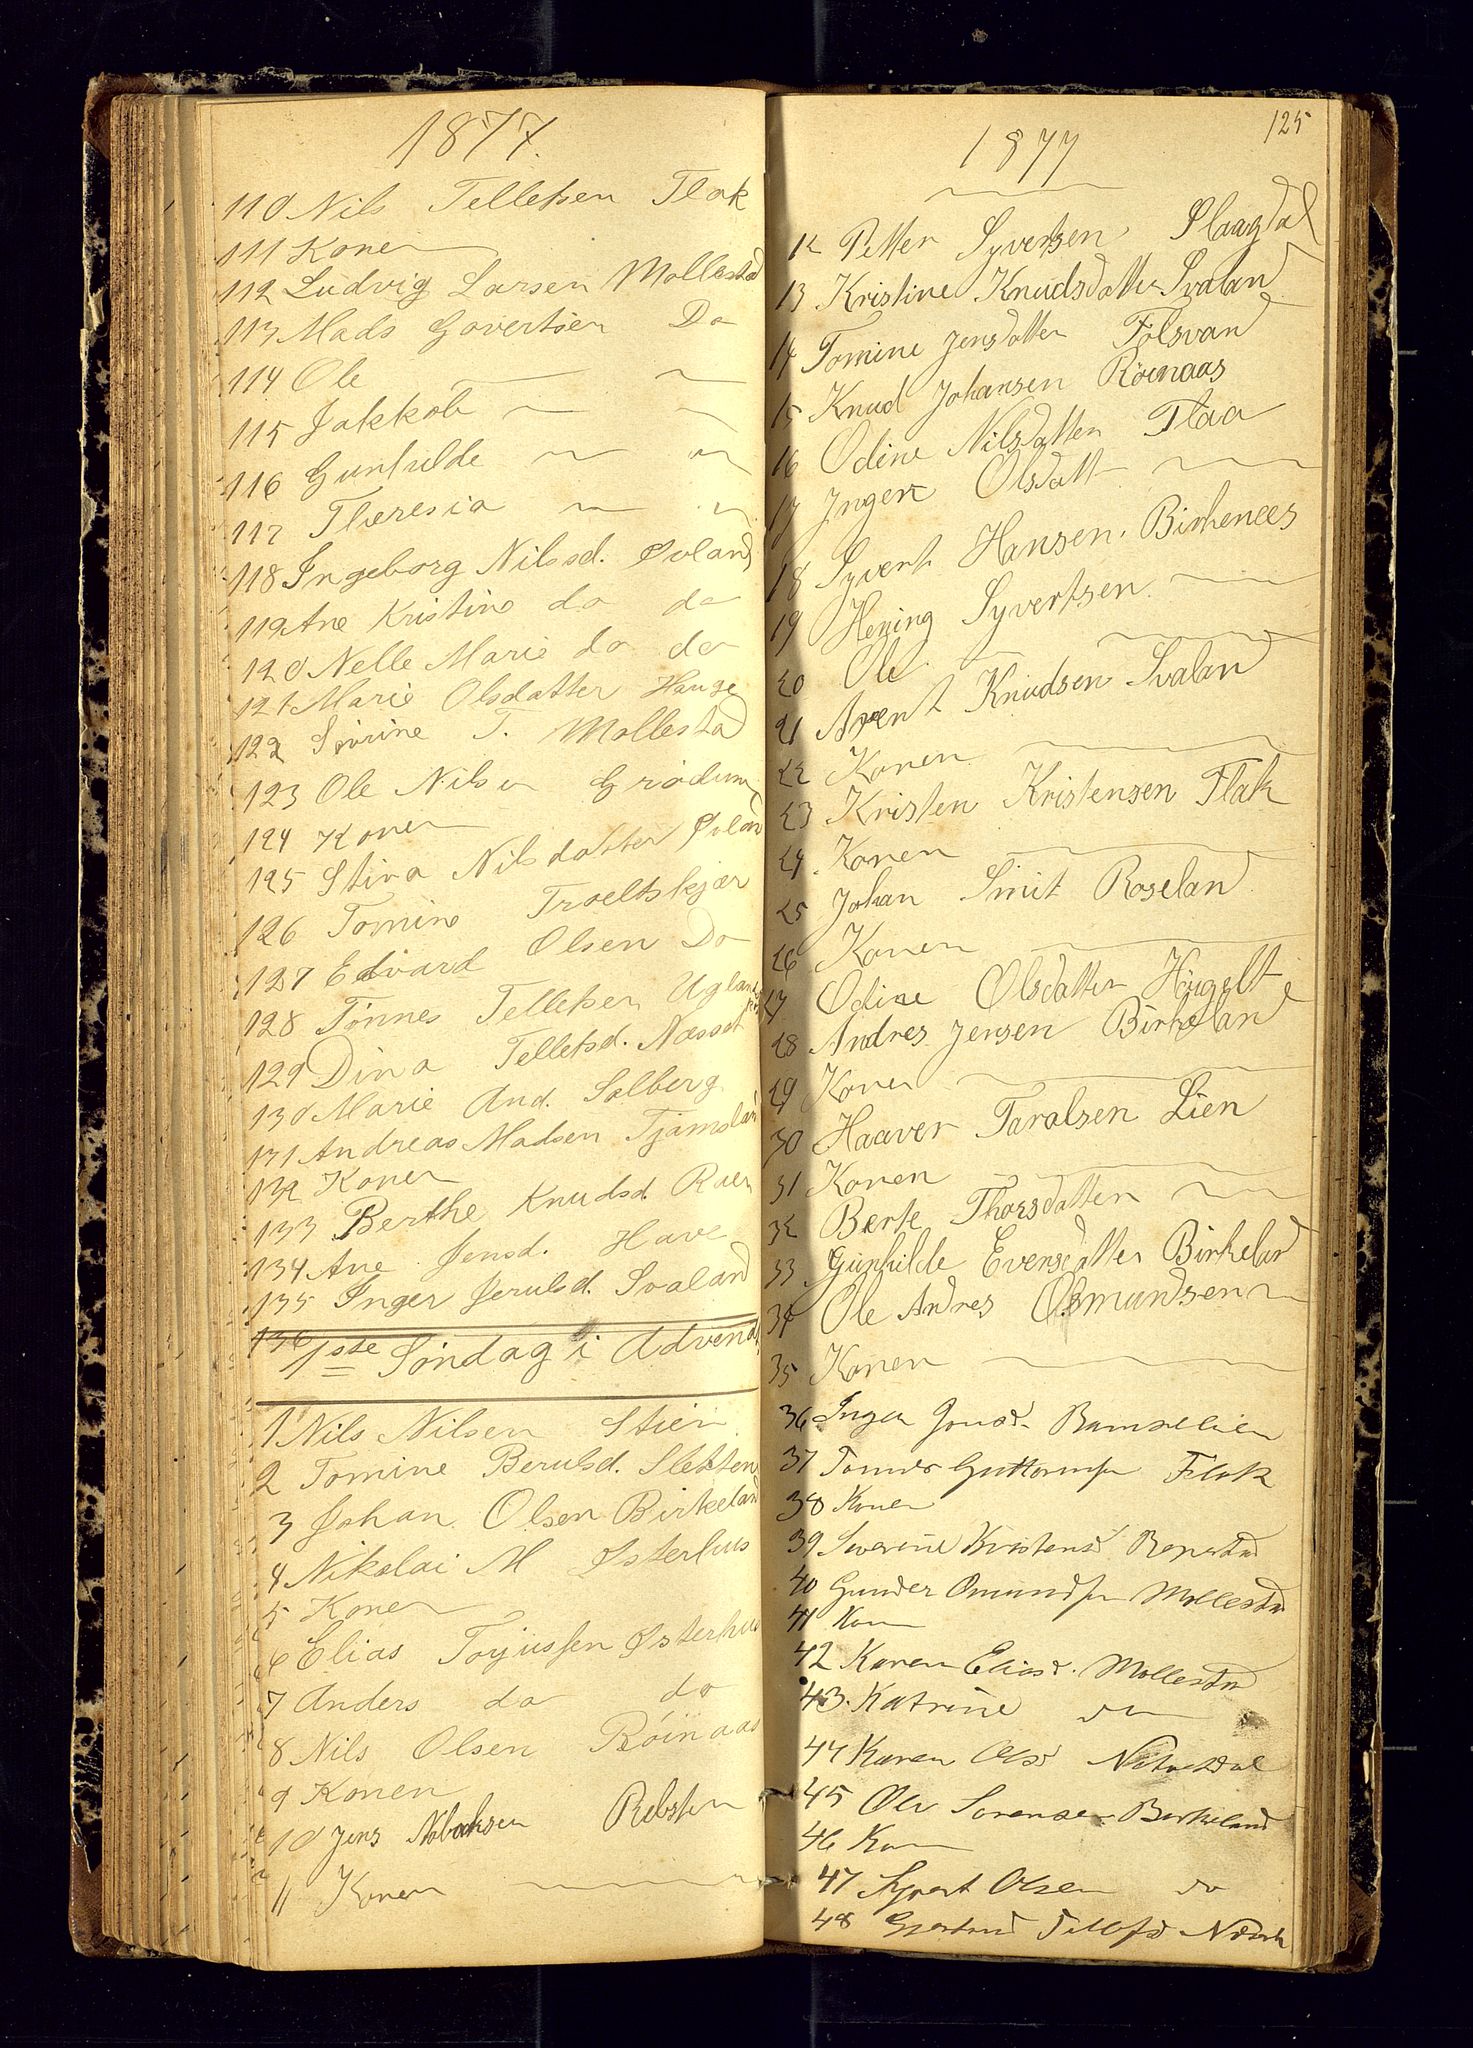 1877.
110 Nils Tellefsen Flak
111 Konen
112 Ludvig Larsen Mollestad
113 Mads Govertsen Do
114 Ole
115 Jakkob
116 Gunhilde
117 Theresia
118 Ingeborg Nilsd. Øvland
119 Ane Kristine do do
120 Nelle Marie do do
121 Marie Olsdatter Hauge
122 Sørine T. Mollestad
123 Ole Nilsen Grødum
124 Konen
125 Stina Nilsdatter Øvland
126 Tomine Troeltskjær
127 Edvard Olsen Do
128 Tønnes Tellefsen Ugland
129 Dina Tellefsd. Næsset
130 Marie And. Solberg
131 Andreas Madsen Tjamsland
132 Konen
133 Berthe Knudsd. Raen
134 Ane Jensd. Have
135 Inger Jerulsd. Svaland
136
1ste Søndag i Advend
1 Nils Nilsen Stien
2 Tomine Berulsd. Sletten
3 Johan Olsen Birkeland
4 Nikolai M Østerhus
5 Konen
6 Elias Torjussen Østerhus
7 Anders do do
8 Nils Olsen Röinaas
9 Konen
10 Jens
11 Konen
125
1877
12 Petter Syvertsen Plaagdal
13 Kristine Knudsdatter Svalan
14 Tomine Jensdatter Tolsvan
15 Knud Johansen Röinaas
16 Odine Nilsdatter Flaa
17 Inger Olsdatt
18 Syvert Hansen. Birkenees
19 Hening Syvertsen
20 Ole
21 Arent Knudsen Svalan
22 Konen
23 Kristen Kristensen Flak
24. Konen
25 Johan Smit Roselan
26 Konen
27 Odine Olsdatter Høigelt
28 Andres Jensen Birkelan
29 Konen
30 Haaver Taralsen Lien
31 Konen
32 Berte Thorsdatter
33 Gunhilde Evensdatter Birkelan
34 Ole Andres Osmundsen
35 Konen
36 Inger Jonsd. Bamselien
37 Tomes Guttormsen Flak
38 Konen
39 Severine Kristensd Repstad
40 Gunder Omundsen Mollestad
41 Kon
42 Karen Eliasd. Mollestad
43. Katrine do
44 Karen Olsd
45 Ole Sorensen Berkeland
46 Kon
47 Syvert Olsen do
48 Gjertrud Tellefsd